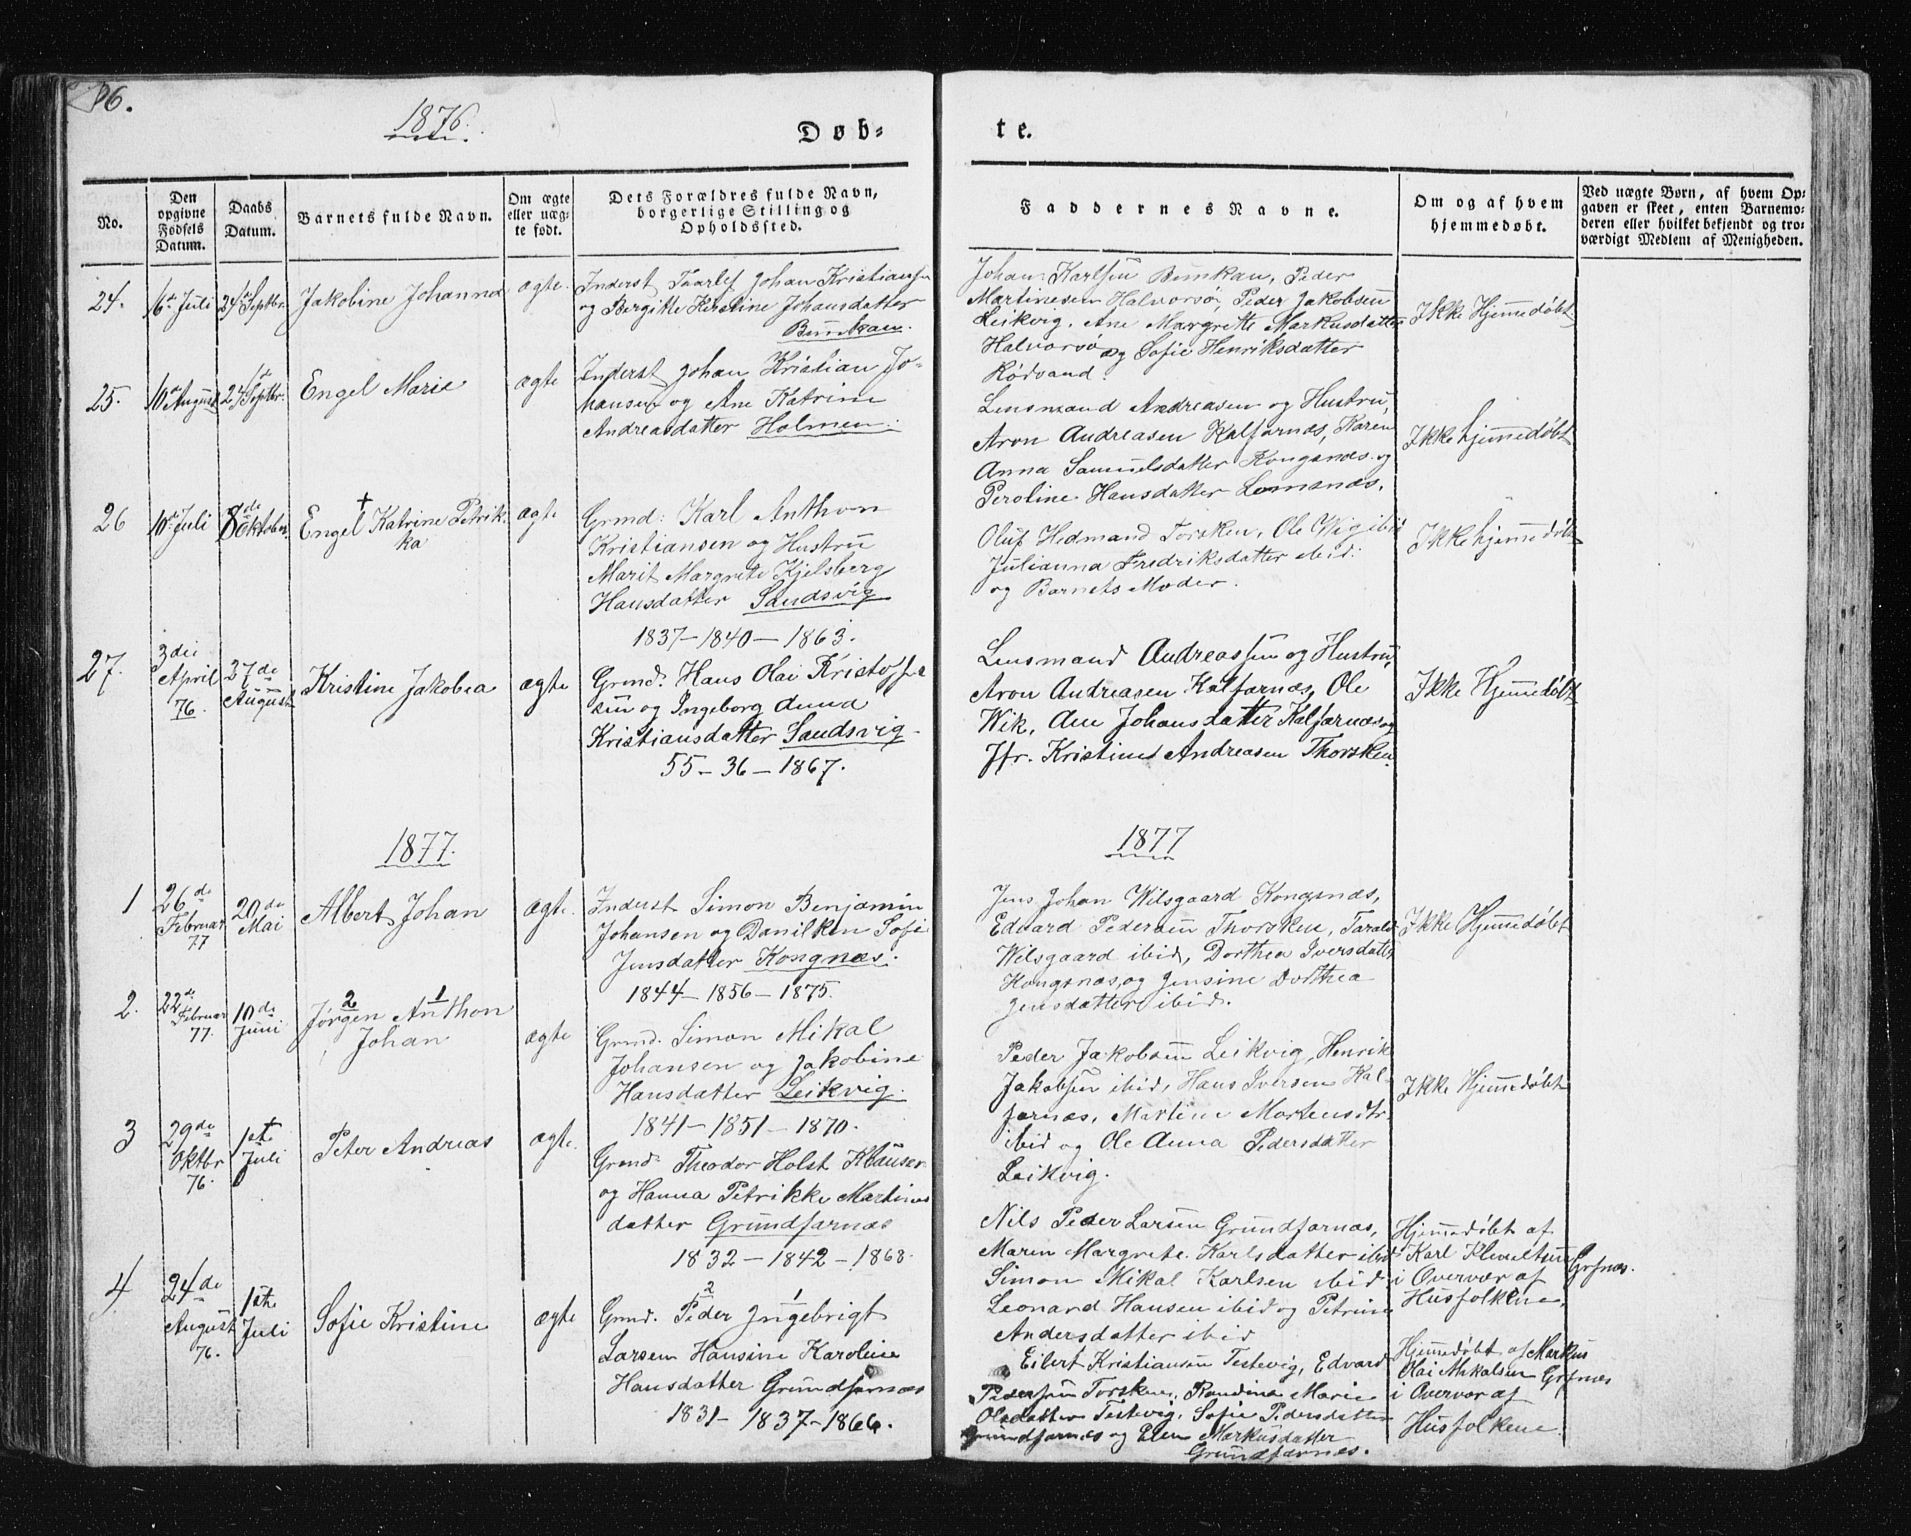 86.
1876.
Döb-
te.
No.
Den opgivne Fødsels Datum.
Daabs Datum.
Barnets fulde Navn.
Om ægte eller uæg-te født.
Dets Forældres fulde Navn, borgerlige Stilling og Opholdssted.
Faddernes Navne.
Om og af hvem hjemmedøbt.
Ved uægte Børn, af hvem Op-
gaven er skeet, enten Barnemo-
deren eller hvilket bekjendt og tro-
værdigt Medlem af Menigheden.
24.
16de Juli
24de Septbr.
Jakobine Johanna
ægte.
Inderst Taarlef Johan Kristiansen
og Bergitte Kirstine Johansdatter
Bunkan.
Johan Karlsen Bunkan, Peder
Martinesen Halvorsø, Peder Jakobsen
Leikvig, Ane Margrette Markusdatter
Halvorsø og Sofie Henriksdatter
Rødsand.
Ikke Hjemmedøbt
25.
10de August
24de Septbr.
Engel Marie
ægte
Inderst Johan Kristian Jo-
hansen og Ane Katrine
Andreasdatter Holmen.
Lensmand Andreasen og Hustru,
Aron Andreasen Kalfarnæs, Karen
Anna Samuelsdatter Kongsnæs og
Peroline Hansdatter Lomsnæs.
Ikke hjemmedøbt
26
10de Juli
8de Oktober
Engel + Katrine Petrik-
ka
ægte
Grmd: Karl Anthon
Kristiansen og Hustru
Marit Margrete Kjelsberg
Hansdatter Sandsvig
1837-1840-1863.
Oluf Hedmand Torsken, Ole Wig ibid
Julianna Fredriksdatter ibid.
og Barnets Moder.
Ikke hjemmedøbt
27.
3die April 76.
27de August
Kristine Jakobea
ægte
Grmd. Hans Olai Kristoffer
sen og Ingeborg Anna
Kristiansdatter Sandsvig
55-36-1867.
Lensmand Andreassen og Hustru,
Aron Andreasen Kalfarnæs, Ole
Wik, Ane Johansdatter Kalfarnæs og
Jfr. Kristine Andreasen Thorsken.
Ikke Hjemmedøbt
1877.
1877
1
26de Februar 77
20de Mai
Albert Johan
ægte.
Inderst Simon Benjamin
Johansen og Danilken Sofie
Jensdatter Kongnæs.
1844-1856-1875.
Jens Johan Wilsgaard Kongsnæs,
Edvard Pedersen Thorsken, Tarald
Wilsgaard ibid, Dorthea Iversdatter
Kongsnæs, og Jensine Dorthea
Jensdatter ibid.
Ikke Hjemmedøbt
2.
22de Februar 77.
10de Juni
2 1
Jørgen Anthon
Johan
ægte
Grmd. Simon Mikal
Johansen og Jakobine
Hansdatter Leikvig.
1841-1851-1870.
Peder Jakobsen Leikvig, Henrik
Jakobsen ibid, Hans Iversen Kal-
farnæs, Martine Mortensdtr.
ibid og Ole Anna Pedersdatter
Leikvig.
Ikke Hjemmedøbt
3
29de Oktbr 76.
1ste Juli
Peter Andreas
ægte.
Grmd. Theodor Holst Klausen
og Hanna Petrikke Martines
datter Grundfarnæs
1832-1842-1868.
Nils Peder Larsen Grundfarnæs,
Maren Margrete Karlsdatter ibid
Simon Mikal Karlsen ibid
Leonard Hansen ibid og Petrine
Andersdatter ibid
Hjemmedøbt af
Karl Klemetsen Grfnæs.
i Overvær af
Husfolkene.
4
24de August 76.
1ste Juli
Sofie Kristine
ægte
2 1
Grmd. Peder Ingebrigt
Larsen Hansine Karoline
Hansdatter Grundfarnæs
1831-1837-1866.
Eilert Kristiansen Testevig, Edvard
Pedersen Torsken, Randina Marie
Olsdatter Testevig, Sofie Pedersdatter
Grundfarnæs og Elen Markusdatter
Grundfarnæs.
Hjemmedøbt af Markus
Olai Mikalsen Grfnæs
i Overvær af
Husfolkene